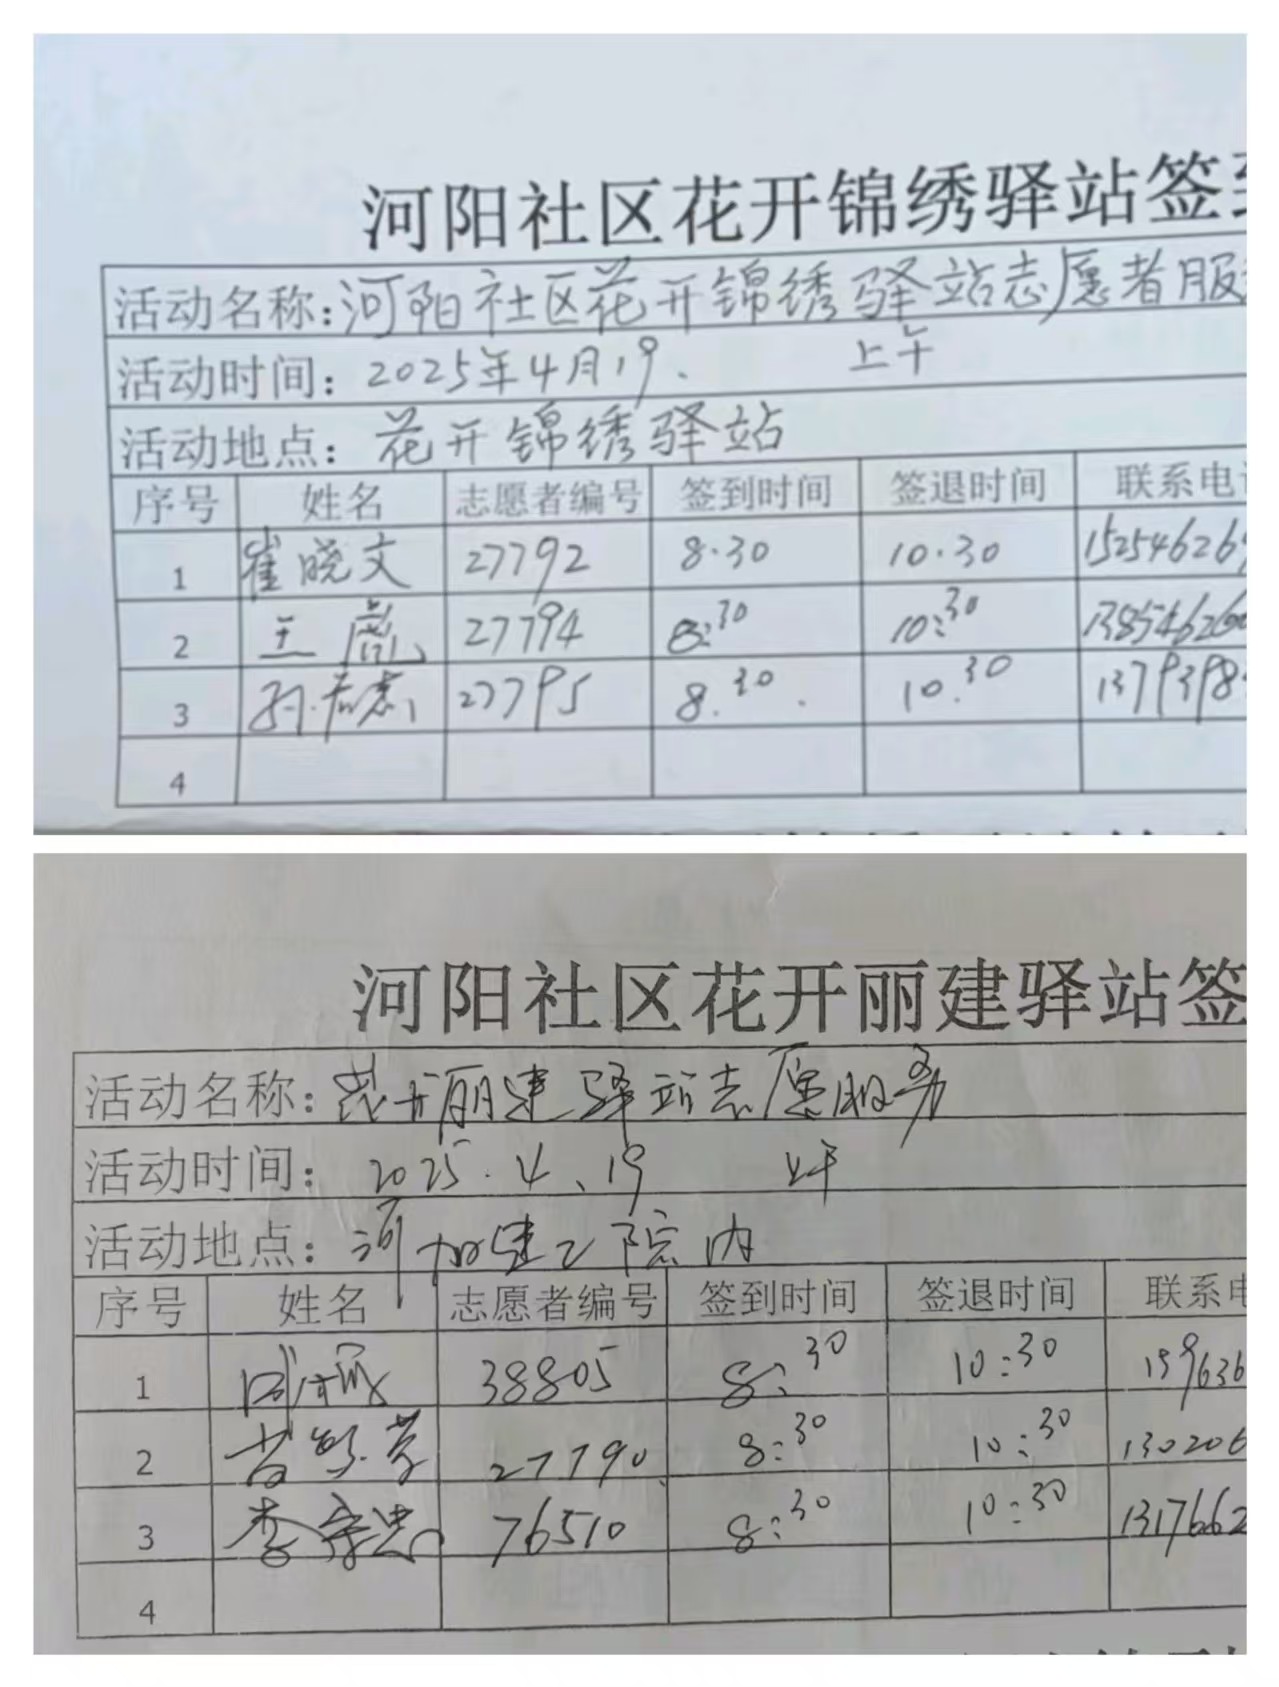 河阳社区花开锦绣驿站签
活动名称:河阳社区花开锦绣驿站志愿者服
活动时间: 2025年4月19、 上午
活动地点: 花开锦绣驿站
序号 姓名 志愿者编号 签到时间 签退时间 联系电
1 崔晓文 27792 8.30 10.30 15254626
2 王 27794 8:30 10:30 138546260
3 孙 27795 8.30. 10.30 1379398
4
河阳社区花开丽建驿站签
活动名称: 花开丽建驿站志愿服务
活动时间: 2025.4、19 上午
活动地点: 河 建 院内
序号 姓名 志愿者编号 签到时间 签退时间 联系
1 38805 8:30 10:30 159636
2 27790 8:30 10:30 130206
3 李守忠 76510 8:30 10:30 1317662
4